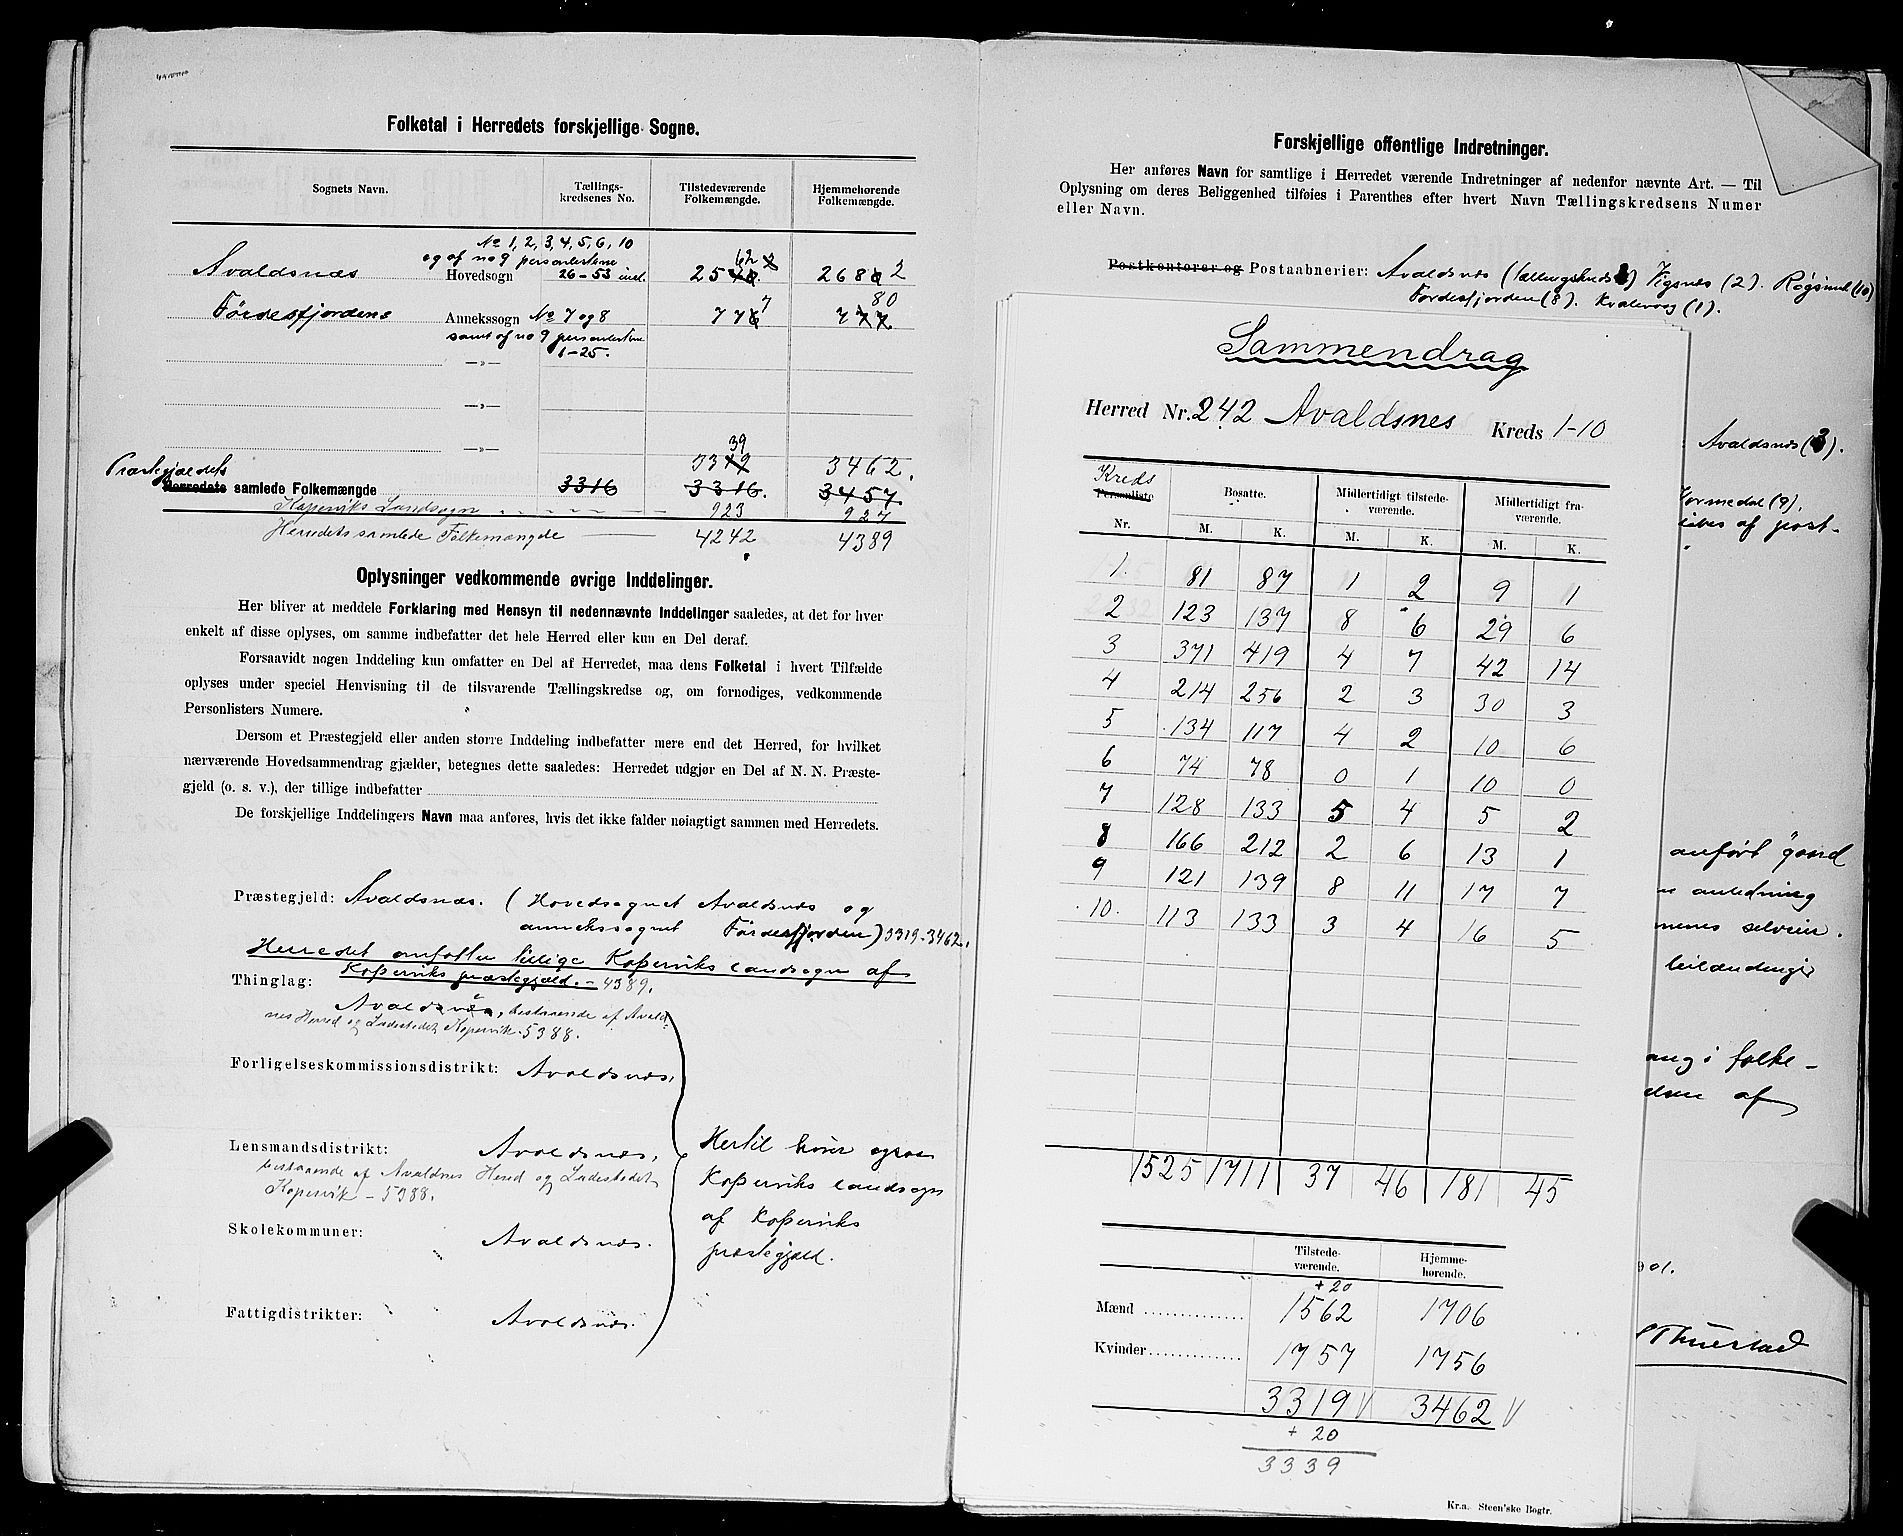 Folketal i Herredets forskjellige Sogne.
Sognets Navn.
Tællings-
kredsenes No.
Tilstedeværende
Folkemængde.
Hjemmehørende
Folkemængde.
No 1, 2, 3, 4, 5, 6, 10
og af no 9 personlisterne
Avaldsnæs Hovedsogn 26-53 incl. 2562 2682
Førdesfjordens Annekssogn No 7 og 8 777 780
samt af no 9 personlisterne
1-25.
—„—
—„—
—„—
39
3319 3462.
Præstegjældets
Herredets samlede Folkemængde 3316 3316. 3457
Kopervik Landsogn 923 927
Herredets samlede Folkemængde 4242 4389
Oplysninger vedkommende øvrige Inddelinger.
Her bliver at meddele Forklaring med Hensyn til nedennævnte Inddelinger saaledes, at det for hver
enkelt af disse oplyses, om samme indbefatter det hele Herred eller kun en Del deraf.
Forsaavidt nogen Inddeling kun omfatter en Del af Herredet, maa dens Folketal i hvert Tilfælde
oplyses under speciel Henvisning til de tilsvarende Tællingskredse og, om fornødiges, vedkommende
Personlisters Numere.
Dersom et Præstegjeld eller anden større Inddeling indbefatter mere end det Herred, for hvilket
nærværende Hovedsammendrag gjælder, betegnes dette saaledes: Herredet udgjør en Del af N. N. Præste-
gjeld (o. s. v.), der tillige indbefatter
De forskjellige Inddelingers Navn maa anføres, hvis det ikke falder nøiagtigt sammen med Herredets.
Præstegjeld: Avaldsnæs. (Hovedsognet Avaldsnæs og
annekssognet Førdesfjorden) 3319-3462.
Herredet omfatter tillige Koperviks landsogn af
Koperviks præstegjæld. - 4389.
Thinglag:
Avaldsnæs, bestaaende af Avald-
nes Herred og Ladestedet Kopervik - 5388.
Forligelseskommissionsdistrikt: Avaldsnæs.
Lensmandsdistrikt: Avaldsnæs,
bestaaende af Avaldnes Herred og Ladestedet
Kopervik - 5388.
Skolekommuner: Avaldsnæs.
Fattigdistrikter: Avaldsnæs.
Hertil hører ogsaa
Koperviks landsogn
af Koperviks
præstegjæld.
Forskjellige offentlige Indretninger.
Her anføres Navn for samtlige i Herredet værende Indretninger af nedenfor nævnte Art. — Til
Oplysning om deres Beliggenhed tilføies i Parenthes efter hvert Navn Tællingskredsens Numer
eller Navn.
Postkontorer og Postaabnerier: Avaldsnæs (tællingskreds 3) Vigsnes (2). Røgsund (10)
Førdesfjorden (8). Kvalevaag (1).
Sammendrag
Herred Nr. 242 Avaldsnes Kreds 1-10
Kreds
Personliste
Nr.
Bosatte.
Midlertidigt tilstede-
værende.
Midlertidigt fra-
værende.
M. K. M. K. M. K.
1. 81 87 1 2 9 1
2 123 137 8 6 29 6
3 371 419 4 7 42 14
4 214 256 2 3 30 3
5 134 117 4 2 10 6
6 74 78 0 1 10 0
7 128 133 5 4 5 2
8 166 212 2 6 13 1
9 121 139 8 11 17 7
10. 113 133 3 4 16 5
1525 1711 37 46 181 45
Tilstede-
værende.
Hjemme-
hørende.
+ 20
Mænd 1562 1706
Kvinder 1757 1756
3319 3462
+ 20
3339
Kr.a. Steen'ske Bogtr.
Avaldsnæs (3).
Kormedal (9).
af post-
anført "gaard
anledning
selveier.
leilændinger
i folke-
af
901.